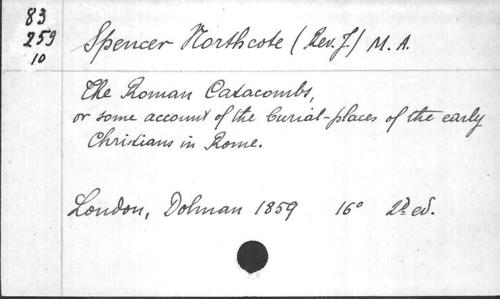 83
259
10
Spencer Northcote (Rev. J.) M. A.
The Roman Catacombs,
or some account of the burial-places of the early
Christians in Rome.
London, Dolman 1859 16° 2d ed.